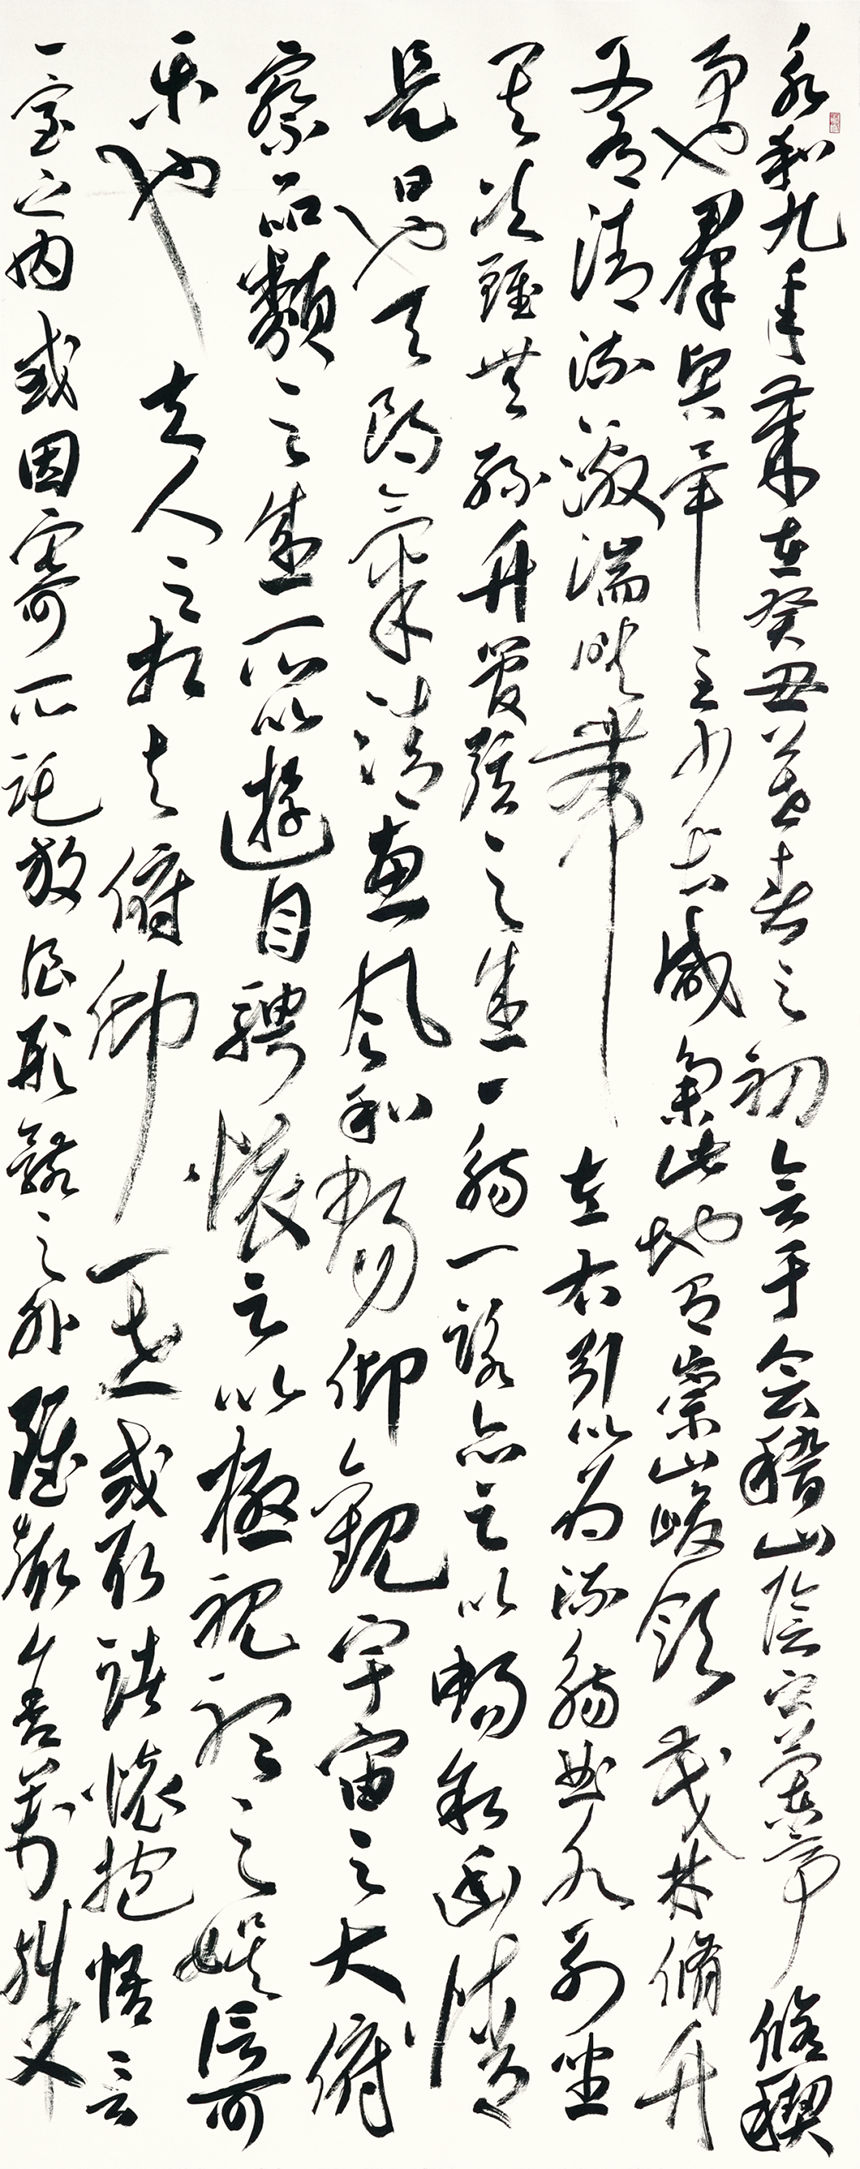 永和九年歲在癸丑暮春之初會于會稽山陰之蘭亭修禊
事也羣賢畢至少長咸集此地有崇山峻領茂林脩竹
又有清流激湍映帶左右引以為流觴曲水列坐
其次雖無絲竹管弦之盛一觴一詠亦足以暢敘幽情
是日也天朗氣清惠風和暢仰觀宇宙之大俯
察品類之盛所以遊目騁懷足以極視聽之娛信可
樂也夫人之相與俯仰一世或取諸懷抱悟言
一室之內或因寄所託放浪形骸之外雖趣舍萬殊